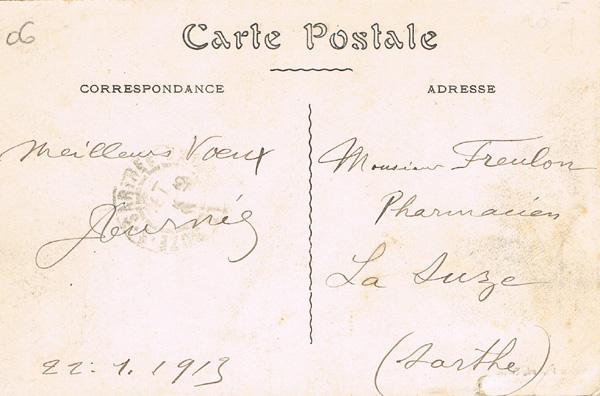 06
Carte Postale
CORRESPONDANCE
Meilleurs Voeux
22.1.1913
ADRESSE
Monsieur Freulon
Pharmacien
La Suze
(Sarthe)